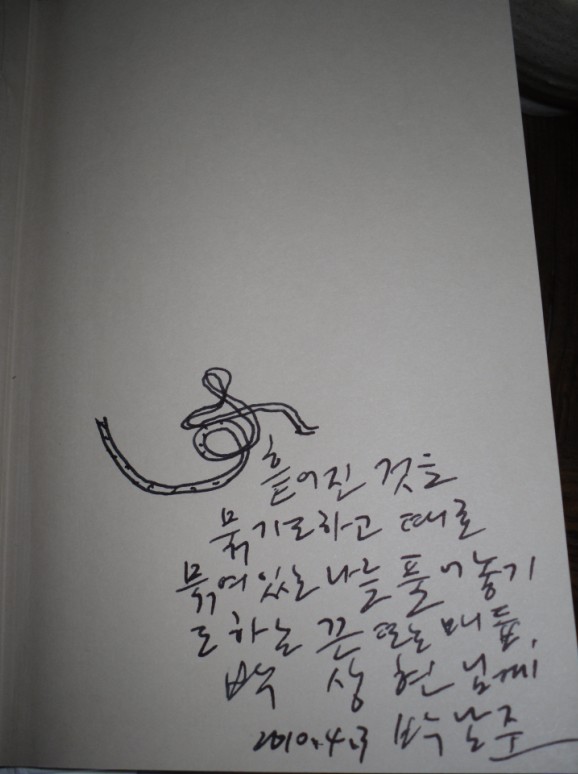 흩어진 것들
묶기도하고 때로
묶여있는 나를 풀어놓기
도 하는 끈 또는 매듭,
박 상 현 님께
2010.4.3 박남준